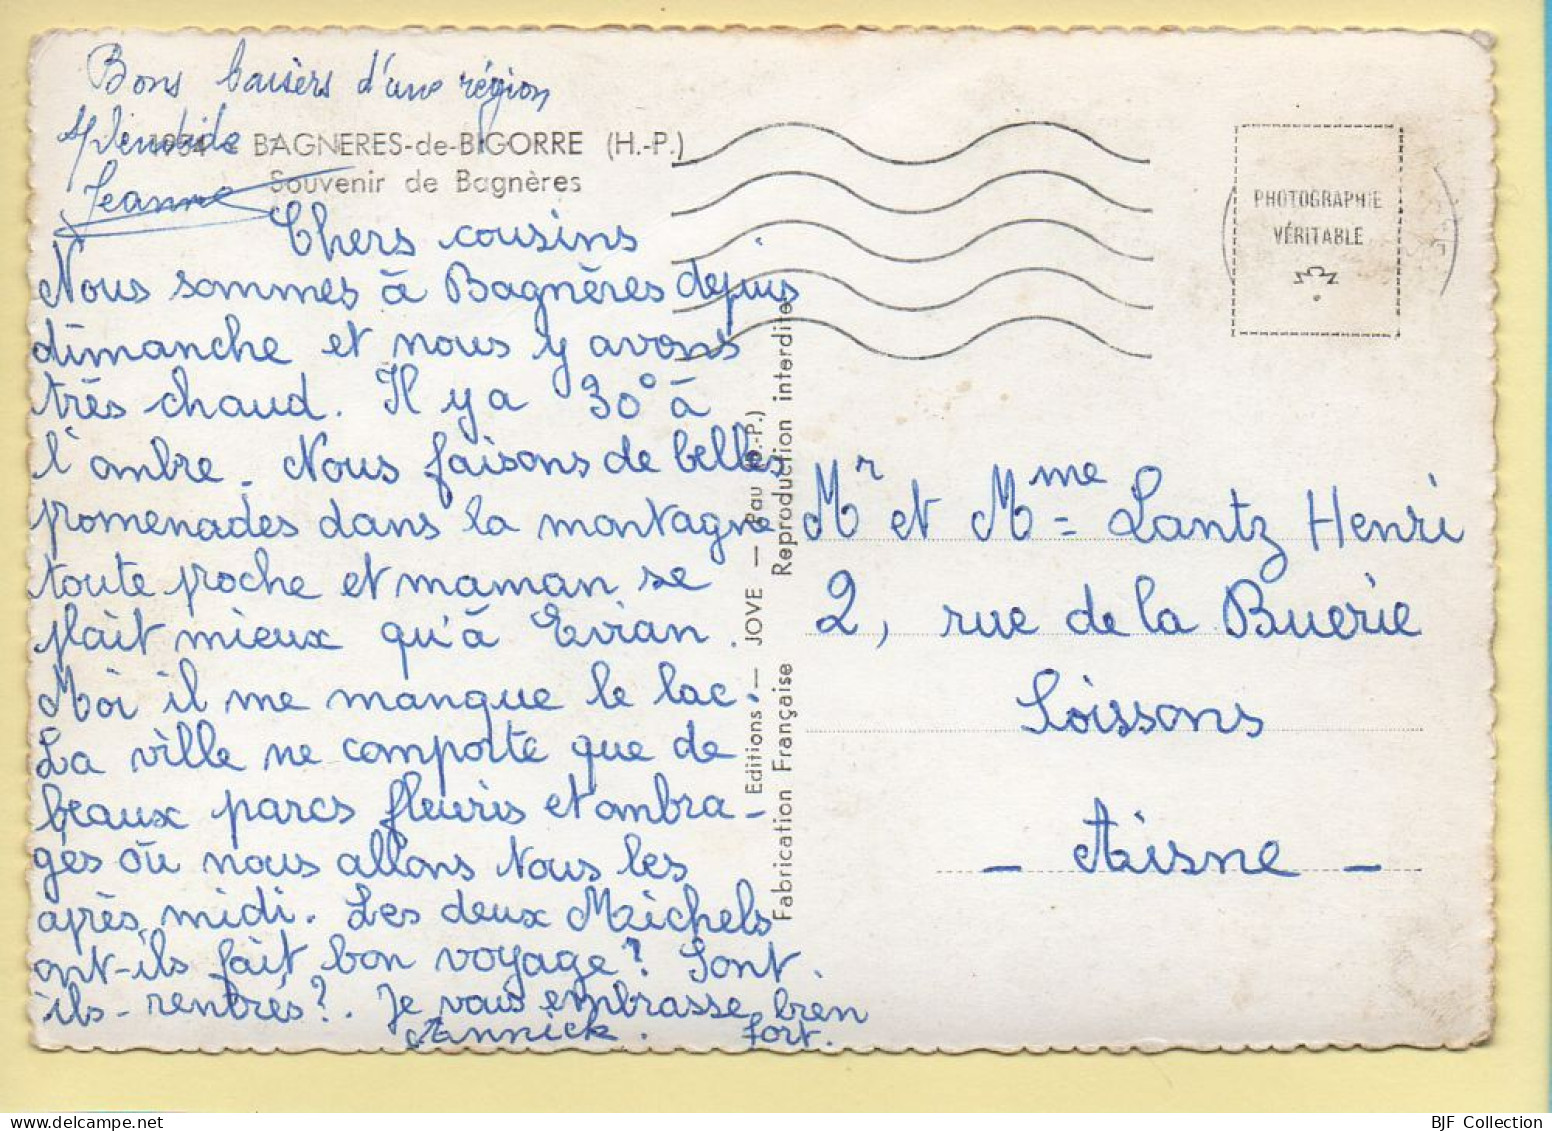 Bons baisers d'une région
splendide
Jeanne
BAGNERES-de-BIGORRE (H.-P.)
Souvenir de Bagnères
Chers cousins
Nous sommes à Bagnères depuis
dimanche et nous y avons
très chaud. Il y a 30° à
l'ombre. Nous faisons de belles
promenades dans la montagne
toute proche et maman se
plait mieux qu'à Evian.
Moi il me manque le lac.
La ville ne comporte que de
beaux parcs fleuris et ombra-
gés où nous allons tous les
après, midi. Les deux Michels
ont-ils fait bon voyage? Sont.
ils-rentrés?. Je vous embrasse bien
Annick. fort.
Editions — JOVE — Pau (B.-P.)
Fabrication Française Reproduction interdite
PHOTOGRAPHIE
VÉRITABLE
Mr et Mme = Lantz Henri
2, rue de la Buerie
Soissons
- Aisne -
BJF Collection